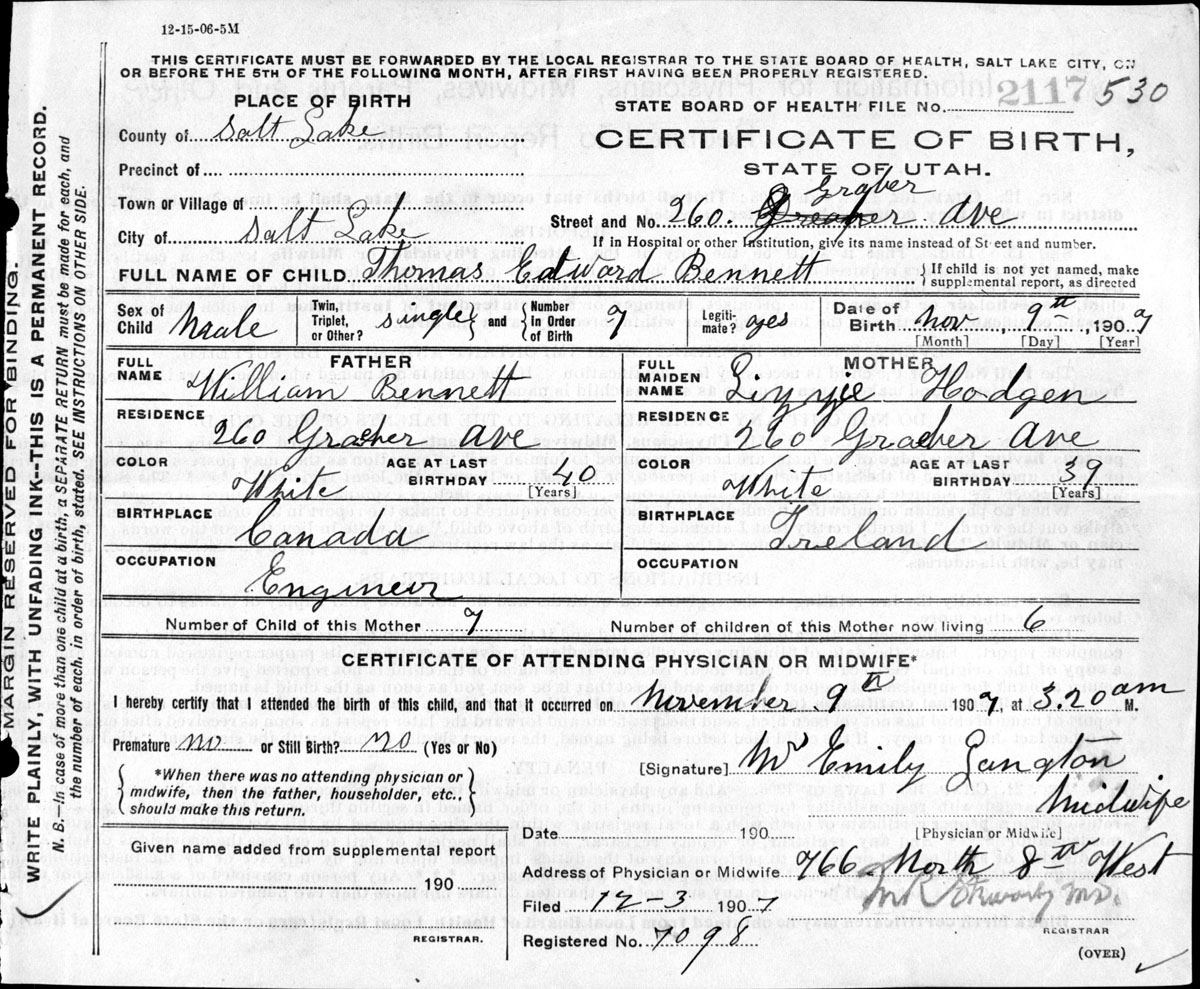 12-15-06-5M
THIS CERTIFICATE MUST BE FORWARDED BY THE LOCAL REGISTRAR TO THE STATE BOARD OF HEALTH, SALT LAKE CITY, ON
OR BEFORE THE 5TH OF THE FOLLOWING MONTH, AFTER FIRST HAVING BEEN PROPERLY REGISTERED.
MARGIN RESERVED FOR BINDING.
WRITE PLAINLY, WITH UNFADING INK--THIS IS A PERMANENT RECORD.
N. B.—In case of more than one child at a birth, a SEPARATE RETURN must be made for each, and
the number of each, in order of birth, stated. SEE INSTRUCTIONS ON OTHER SIDE.
PLACE OF BIRTH
County of Salt Lake
Precinct of
Town or Village of
City of Salt Lake
STATE BOARD OF HEALTH FILE No. 2117 530
CERTIFICATE OF BIRTH,
STATE OF UTAH.
Graber
Street and No. 260 Ave
If in Hospital or other Institution, give its name instead of Street and number.
FULL NAME OF CHILD Thomas Edward Bennett { If child is not yet named, make
supplemental report, as directed
Sex of Child Male Twin, Triplet, or Other? single and Number in Order of Birth 7 Legiti-mate? yes Date of Birth Nov 9th, 1907
[Month] [Day] [Year]
FATHER
FULL NAME William Bennett
RESIDENCE 260 Graber Ave
COLOR White AGE AT LAST BIRTHDAY 40
[Years]
BIRTHPLACE Canada
OCCUPATION Engineir
MOTHER
FULL MAIDEN NAME Lizzie Hodgen
RESIDENCE 260 Graber Ave
COLOR White AGE AT LAST BIRTHDAY 39
[Years]
BIRTHPLACE Ireland
OCCUPATION
Number of Child of this Mother 7 Number of children of this Mother now living 6
CERTIFICATE OF ATTENDING PHYSICIAN OR MIDWIFE*
I hereby certify that I attended the birth of this child, and that it occurred on November 9th 1907, at 3.20 am M.
Premature no or Still Birth? no (Yes or No)
*When there was no attending physician or
midwife, then the father, householder, etc.,
should make this return.
[Signature] Mrs Emily Langton
Midwife
[Physician or Midwife]
Given name added from supplemental report
190
REGISTRAR.
Date 190
Address of Physician or Midwife 766 North 8th West
Filed 12-3 1907
REGISTRAR
Registered No. 7098
(OVER)